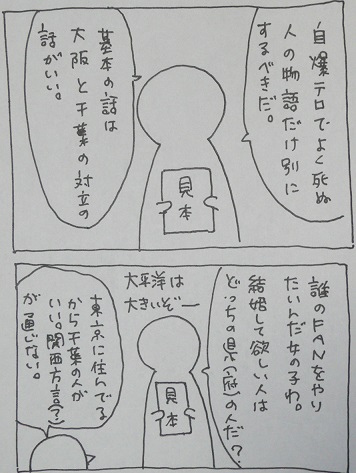 自爆テロでよく死ぬ
人の物語だけ別に
するべきだ。
基本の話は
大阪と千葉の対立の
話がいい。
見本
誰のFANをやり
たいんだ女の子わ。
結婚して欲しい人は
どっちの県(府)の人だ?
大平洋は
大きいぞー
見本
東京に住んでる
から千葉の人が
いい。関西方言(?)
が通じない。